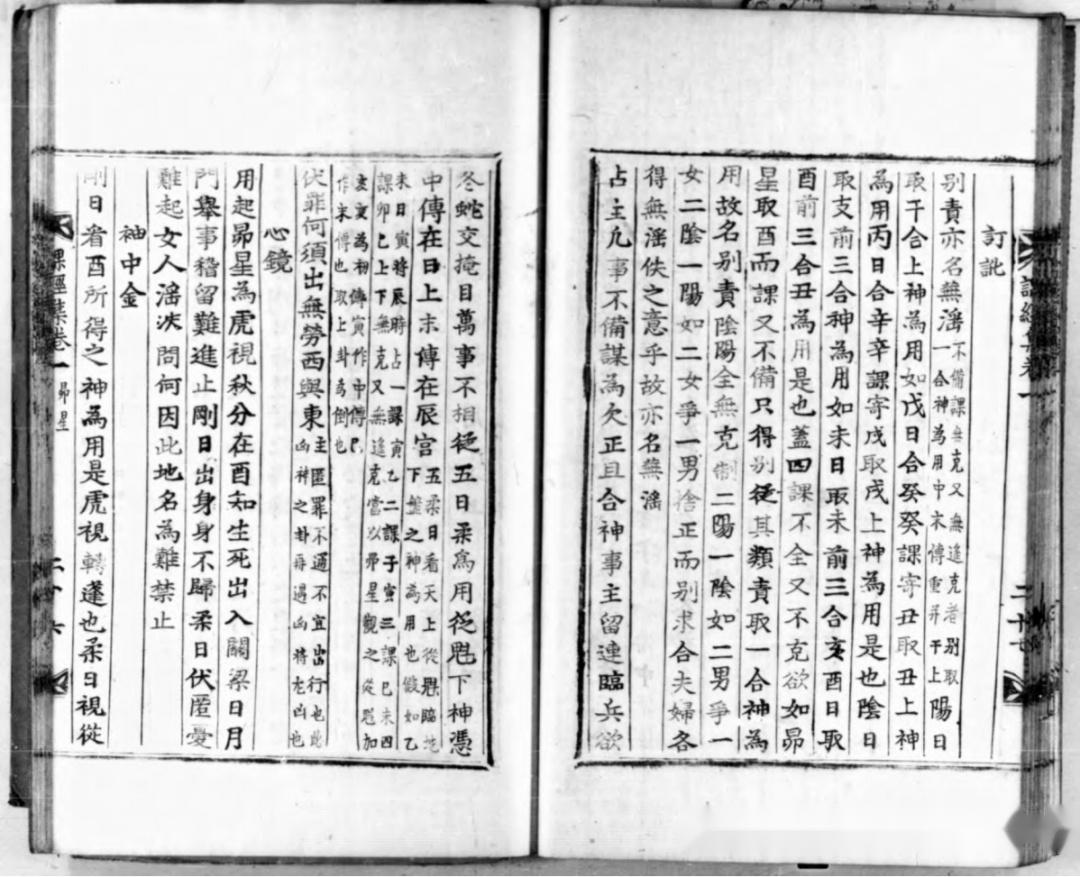 訂訛
別責亦名無滛一不備課無克又無遙克者別取
合神為用中末傳重并干上陽日
取干合上神為用如戊日合癸癸課寄丑取丑上神
為用丙日合辛辛課寄戌取戌上神為用是也陰日
取支前三合神為用如未日取未前三合亥酉日取
酉前三合丑為用是也蓋四課不全又不克欲如昴
星取酉而課又不備只得別從其類責取一合神為
用故名別責陰陽全無克制二陽一陰如二男爭一
女二陰一陽如二女爭一男捨正而別求合夫婦各
得無滛佚之意乎故亦名無滛
占主凡事不備謀為欠正且合神事主留連臨兵欲
冬蛇交掩目萬事不相從五日柔為用從魁下神憑
中傳在日上末傳在辰宮五柔日看天上從魁臨地
下盤之神為用也假如乙
未日寅將辰時占一課寅乙二課子寅三課巳未四
課卯巳上下無克又無遙克當以昴星觀之從魁加
亥亥為初傳寅作中傳巳
作末傳也取上卦為倒也
伏罪何須出無勞西與東主匿罪不通不宜出行也此
凶神之卦再遇凶將尤凶也
心鏡
用起昴星為虎視秋分在酉知生死出入關梁日月
門舉事稽留難進止剛日出身身不歸柔日伏匿憂
難起女人滛泆問何因此地名為難禁止
袖中金
剛日看酉所得之神為用是虎視轉蓬也柔日視從
課經集卷一
昴星
二十六